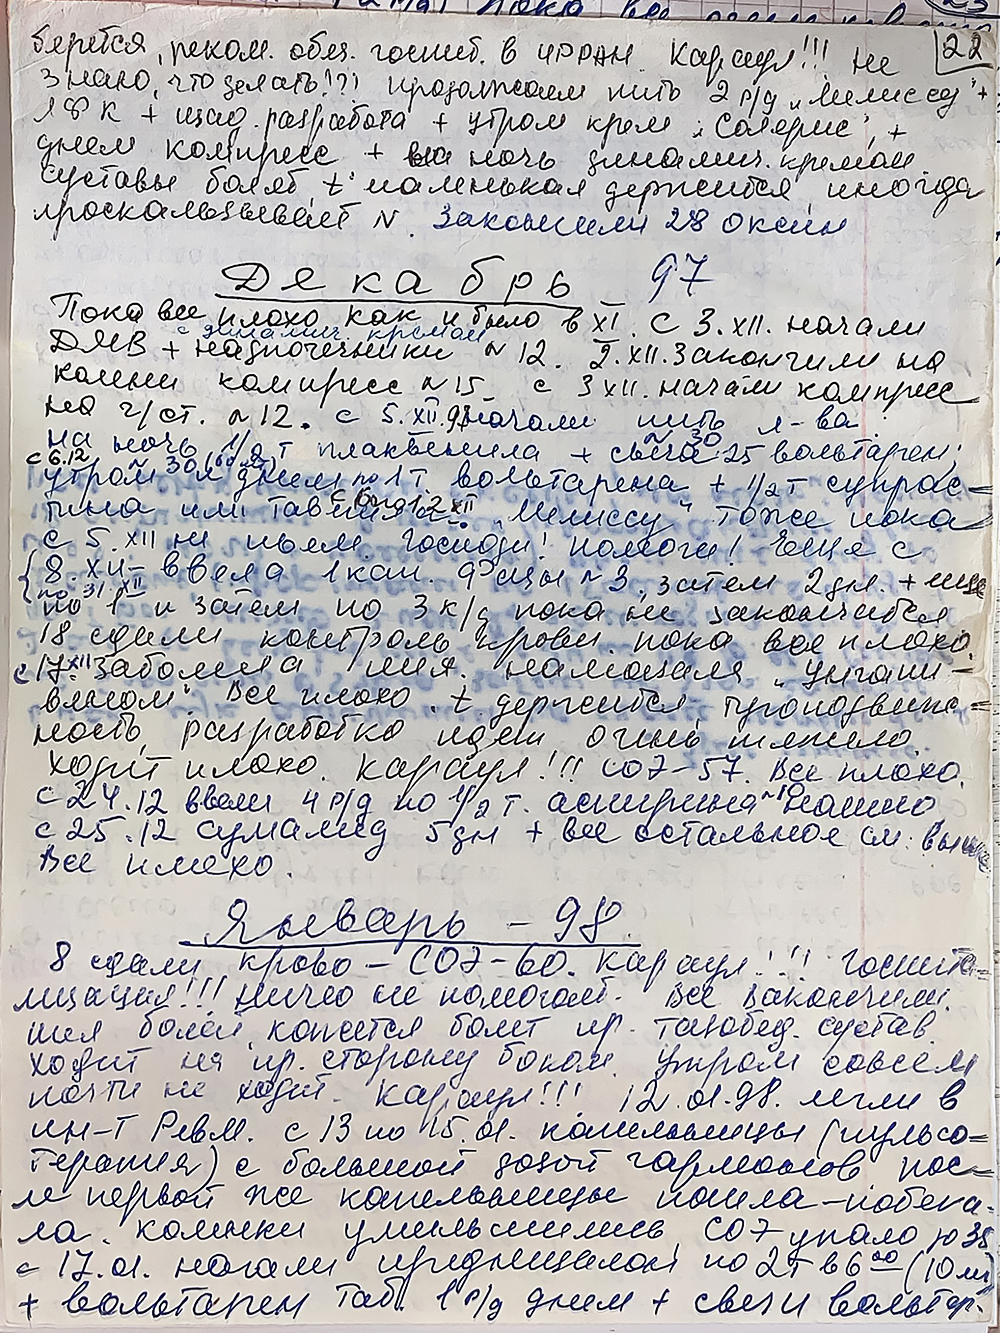 22
берется, реком. обяз. госпит. в ИРРАН. Караул!!! Не
знаю, что делать!?! продолжаем пить 2 р/д „Мелиссу" +
ЛФК + щад. разработка + утром крем „Солерис", +
днем компресс + на ночь динамич. кремом
суставы болят t° маленькая держится иногда
проскальзывает N. Закончили 28 Оксин
Декабрь 97
Пока все плохо как и было в XI. с 3.XII. начали
с динамич кремом
ДМВ + надпочечники N 12. 2.XII. Закончили на
колени компресс N 15. с 3 XII. начали компресс
на г/ст. N 12. с 5.XII 97 начали пить л-ва
на ночь 1/2 т плаквенила + свеча 25 вольтарен,
с 6.12 N 30
утром и днем по 1 т вольтарена + 1/2 т супрас-
тина или тав „Мелиссу" тоже пока
с 5.XII не пьем. Господи! помоги! Еще с
8.XII – ввела 1 кап. N 3, затем 2 дн. + еще
по 31 XII
по 1 и затем по 3 к/д пока не закончится
18 сдали контроль крови. пока все плохо.
с 17.XII заболела шея.
Все плохо. t держится,
ность, разработка идет очень тяжело.
Ходит плохо. Караул!!! СОЭ-57. Все плохо.
с 24.12 ввели 4 р/д по 1/2 т. аспирина N 10
с 25.12 сумамед 5 дн + все остальное см. выше
Все плохо.
Январь – 98
8 сдали кровь – СОЭ-60. Караул!!! Госпита-
лизация!!! Ничего не помогает. Все закончили.
шея болит, кажется болит пр. тазобед. сустав.
Ходит на пр. сторону боком. Утром совсем
почти не ходит. Караул!!! 12.01.98. легли в
ин-т Ревм. с 13 по 15.01. капельницы (пульсо-
терапия) с большой дозой гармонов пос-
ле первой же капельницы пошла – побежа-
ла. коленки уменьшились, СОЭ упало до 38
с 17.01. начали преднизалон по 2 т в 6 00 (10 мг)
+ вольтарен таб. 1 р/д днем + свечи вольтар.